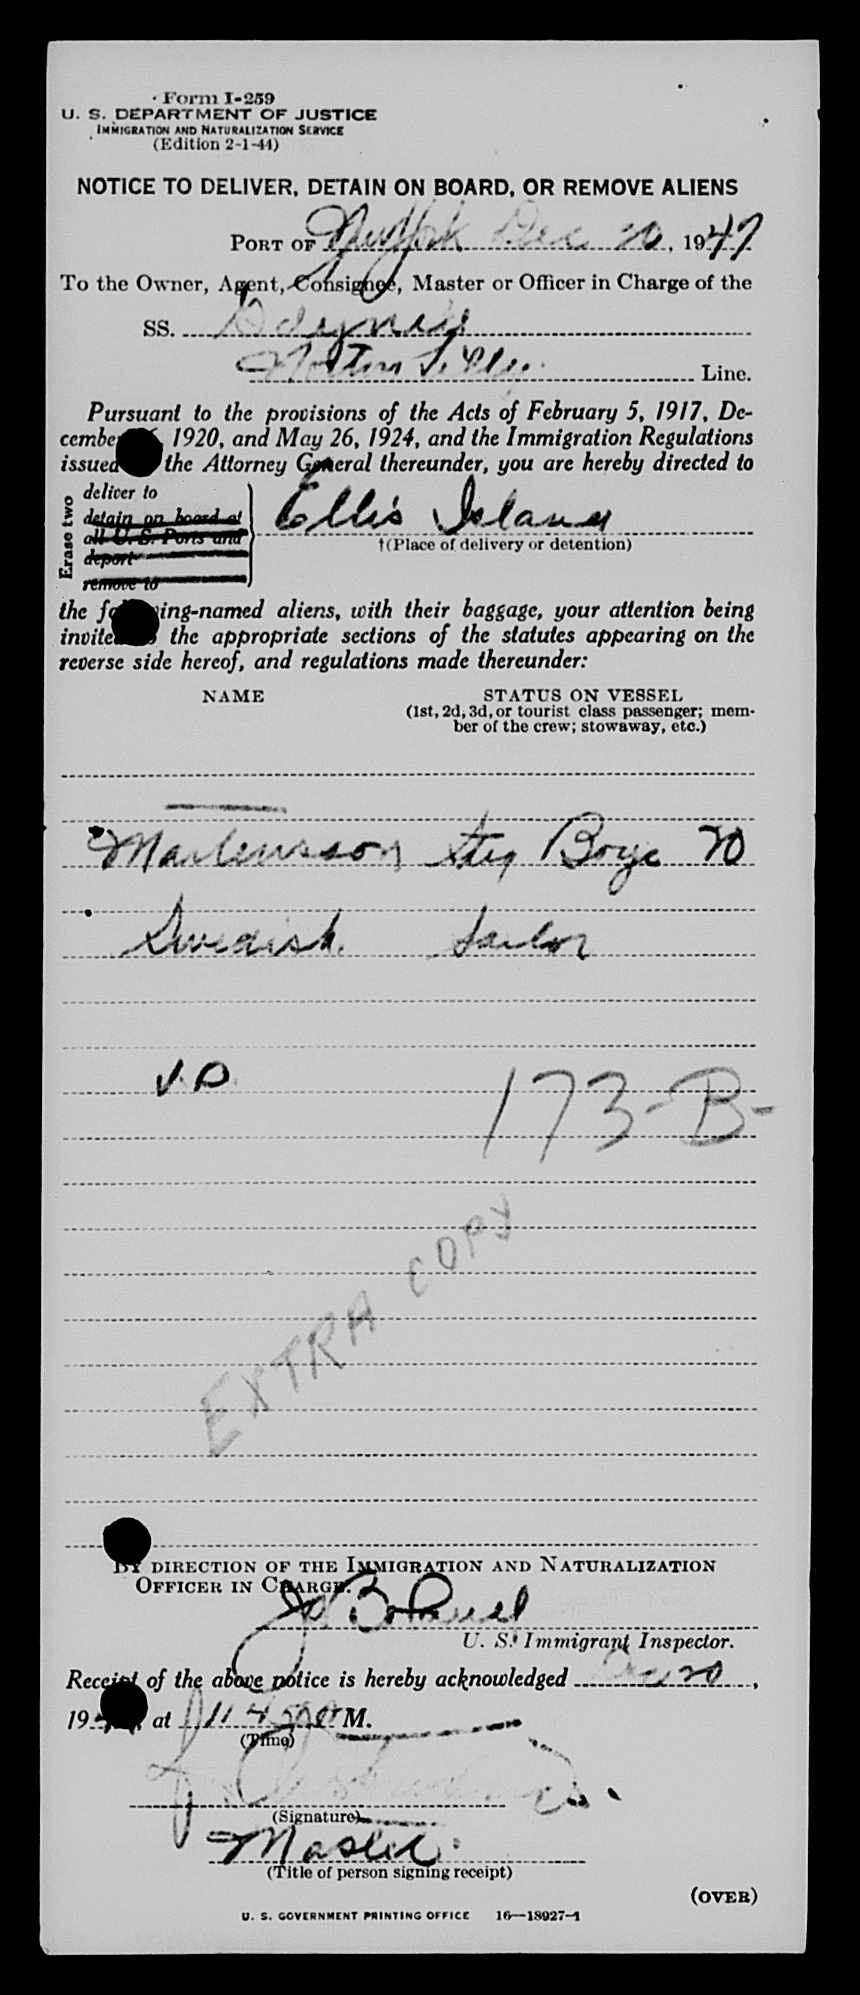 Form I-259
U. S. DEPARTMENT OF JUSTICE
IMMIGRATION AND NATURALIZATION SERVICE
(Edition 2-1-44)
NOTICE TO DELIVER, DETAIN ON BOARD, OR REMOVE ALIENS
PORT OF New York Dec 20, 1947
To the Owner, Agent, Consignee, Master or Officer in Charge of the
SS.
Norton Lilly Line.
Pursuant to the provisions of the Acts of February 5, 1917, De-
cember , 1920, and May 26, 1924, and the Immigration Regulations
issued the Attorney General thereunder, you are hereby directed to
Erase two
deliver to
detain on board at
all U. S. Ports and
deport
remove to
Ellis Island
†(Place of delivery or detention)
the following-named aliens, with their baggage, your attention being
invited the appropriate sections of the statutes appearing on the
reverse side hereof, and regulations made thereunder:
NAME STATUS ON VESSEL
(1st, 2d, 3d, or tourist class passenger; mem-
ber of the crew; stowaway, etc.)
Martensson Stig Borje 20
Swedish. Sailor
V.D.
173-B-
EXTRA COPY
BY DIRECTION OF THE IMMIGRATION AND NATURALIZATION
OFFICER IN CHARGE.
U. S. Immigrant Inspector.
Receipt of the above notice is hereby acknowledged Dec 20,
194 at 11 45 M.
(Time)
(Signature)
Master
(Title of person signing receipt)
(OVER)
U. S. GOVERNMENT PRINTING OFFICE 16—18927-1